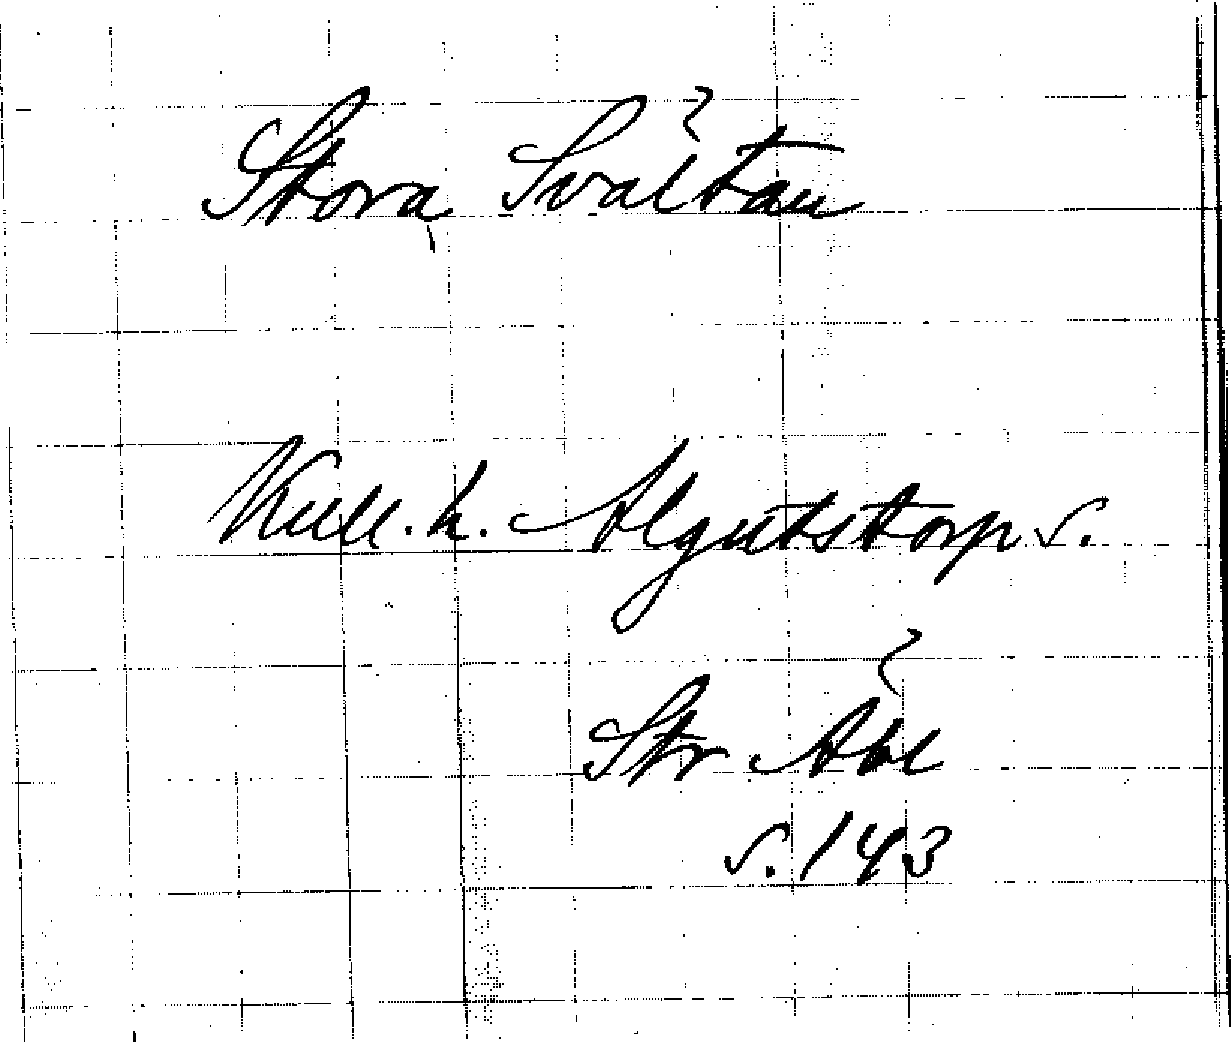 Stora, Svaltan
Kull. h. Algutstorp s.
Str Abl
s. 143